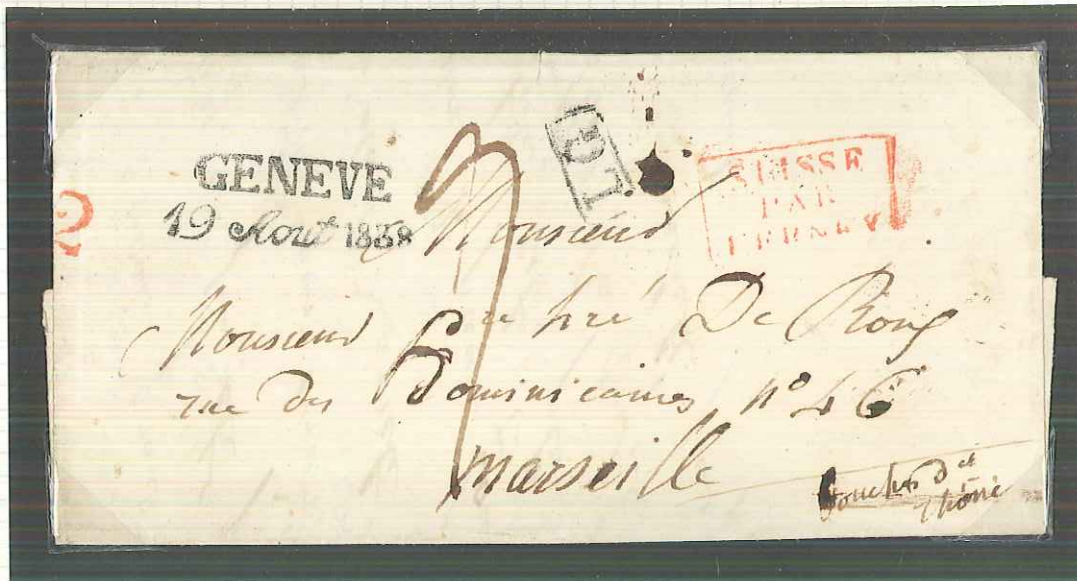 GENEVE
19 Aout 1838
LG
SUISSE
PAR
FERNEY
2
Monsieur
Monsieur De Roux
rue des Dominicaines n° 46
marseille
Bouches du
Rhône